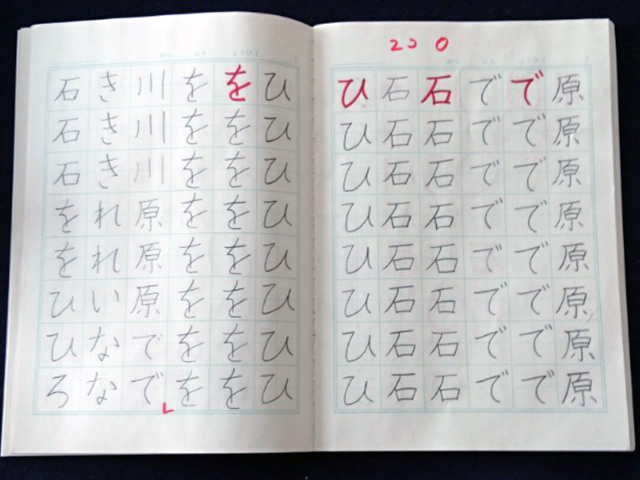 原原原原原原原原
でででででででで
でででででででで
石石石石石石石石
石石石石石石石石
ひひひひひひひひ
ひひひひひひひひ
をををををををを
をををををををを
川川川原原原でで
きききれれいなな
石石石ををひひろ